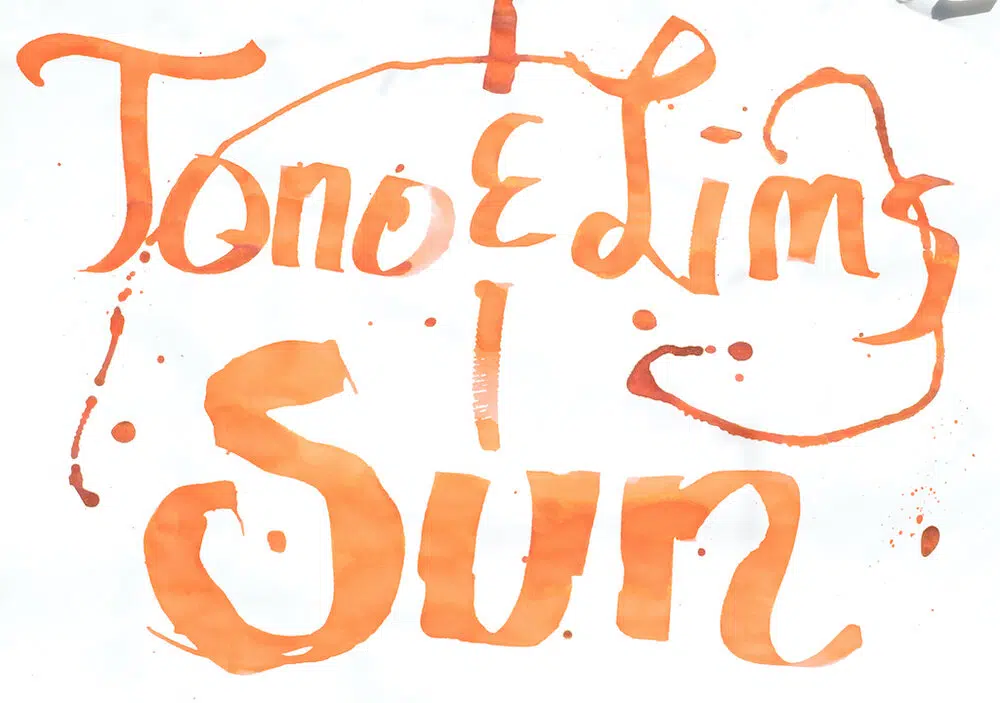 Tono & Lims
Sun